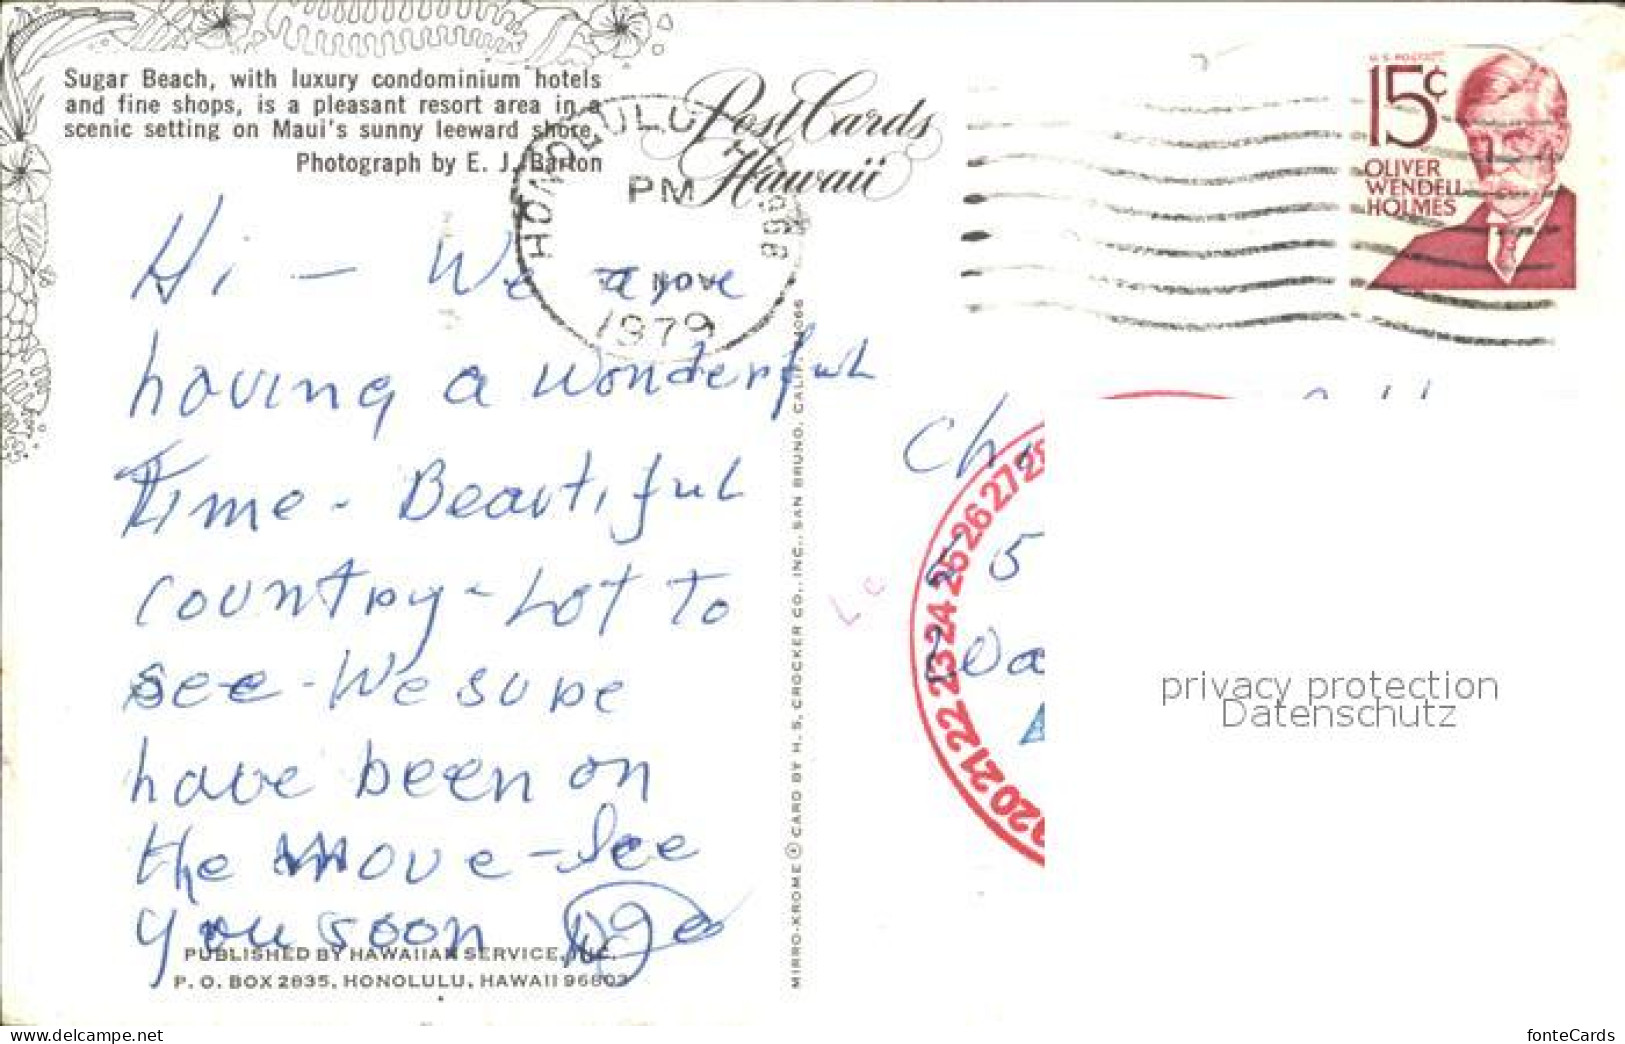 Sugar Beach, with luxury condominium hotels
and fine shops, is a pleasant resort area in a
scenic setting on Maui's sunny leeward shore.
Photograph by E. J. Barton
Post Cards
Hawaii
HONOLULU
PM
NOV
1979
U.S. POSTAGE
15¢
OLIVER
WENDELL
HOLMES
Hi - We are
having a wonderful
Time - Beautiful
country - Lot to
see - We sure
have been on
the move - See
you soon
PUBLISHED BY HAWAIIAN SERVICE, INC.
P. O. BOX 2835, HONOLULU, HAWAII 96803
MIRRO-KROME ® CARD BY H. S. CROCKER CO., INC., SAN BRUNO, CALIF. 94066
Ch
55
Wa
20 21 22 23 24 25 26 27 28
privacy protection
Datenschutz
www.delcampe.net
fonteCards